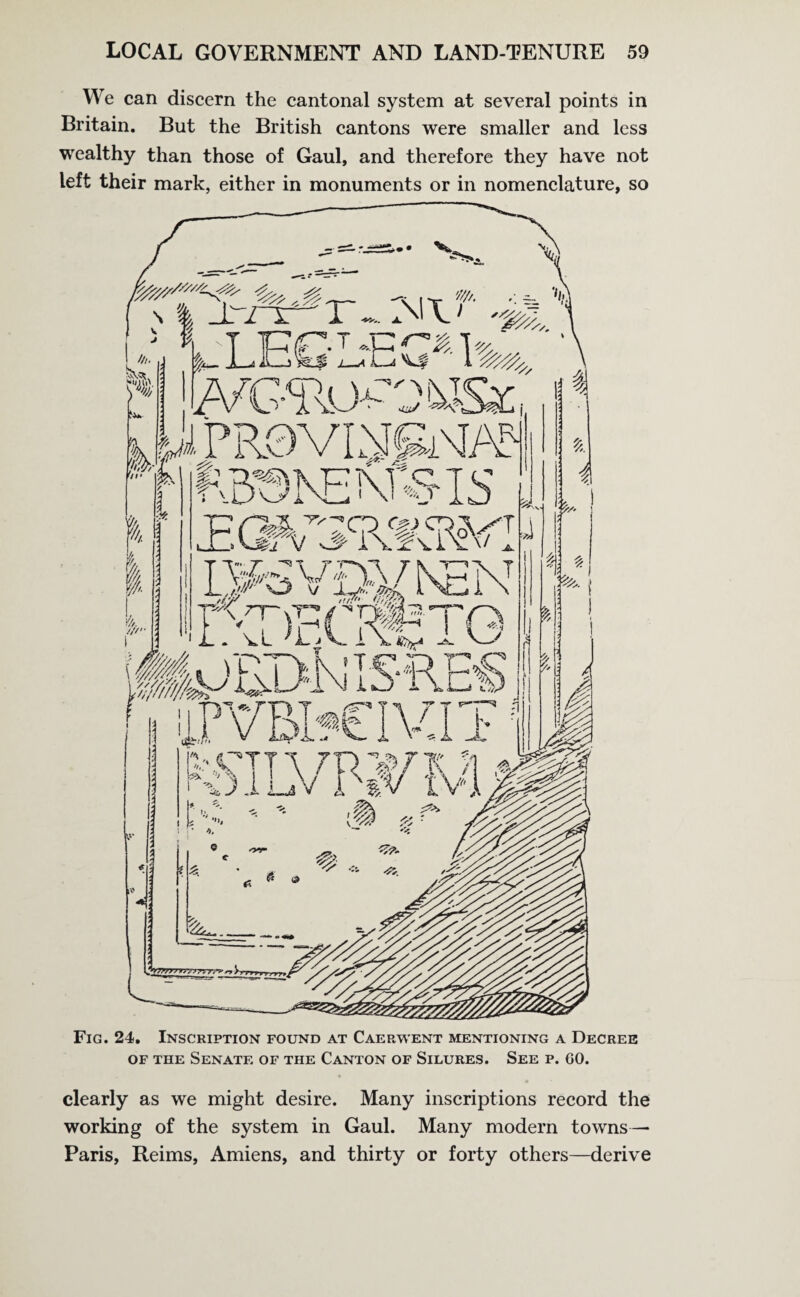 LOCAL GOVERNMENT AND LAND-TENURE 59
We can discern the cantonal system at several points in
Britain. But the British cantons were smaller and less
wealthy than those of Gaul, and therefore they have not
left their mark, either in monuments or in nomenclature, so
LEG LEG
PROVIN NAR
BONENSIS
LVGVDVNEN
EX DECRETO
ORDINIS RES
PVBL CIVIT
SILVRVM
FIG. 24. INSCRIPTION FOUND AT CAERWENT MENTIONING A DECREE
OF THE SENATE OF THE CANTON OF SILURES. SEE P. 60.
clearly as we might desire. Many inscriptions record the
working of the system in Gaul. Many modern towns—
Paris, Reims, Amiens, and thirty or forty others—derive